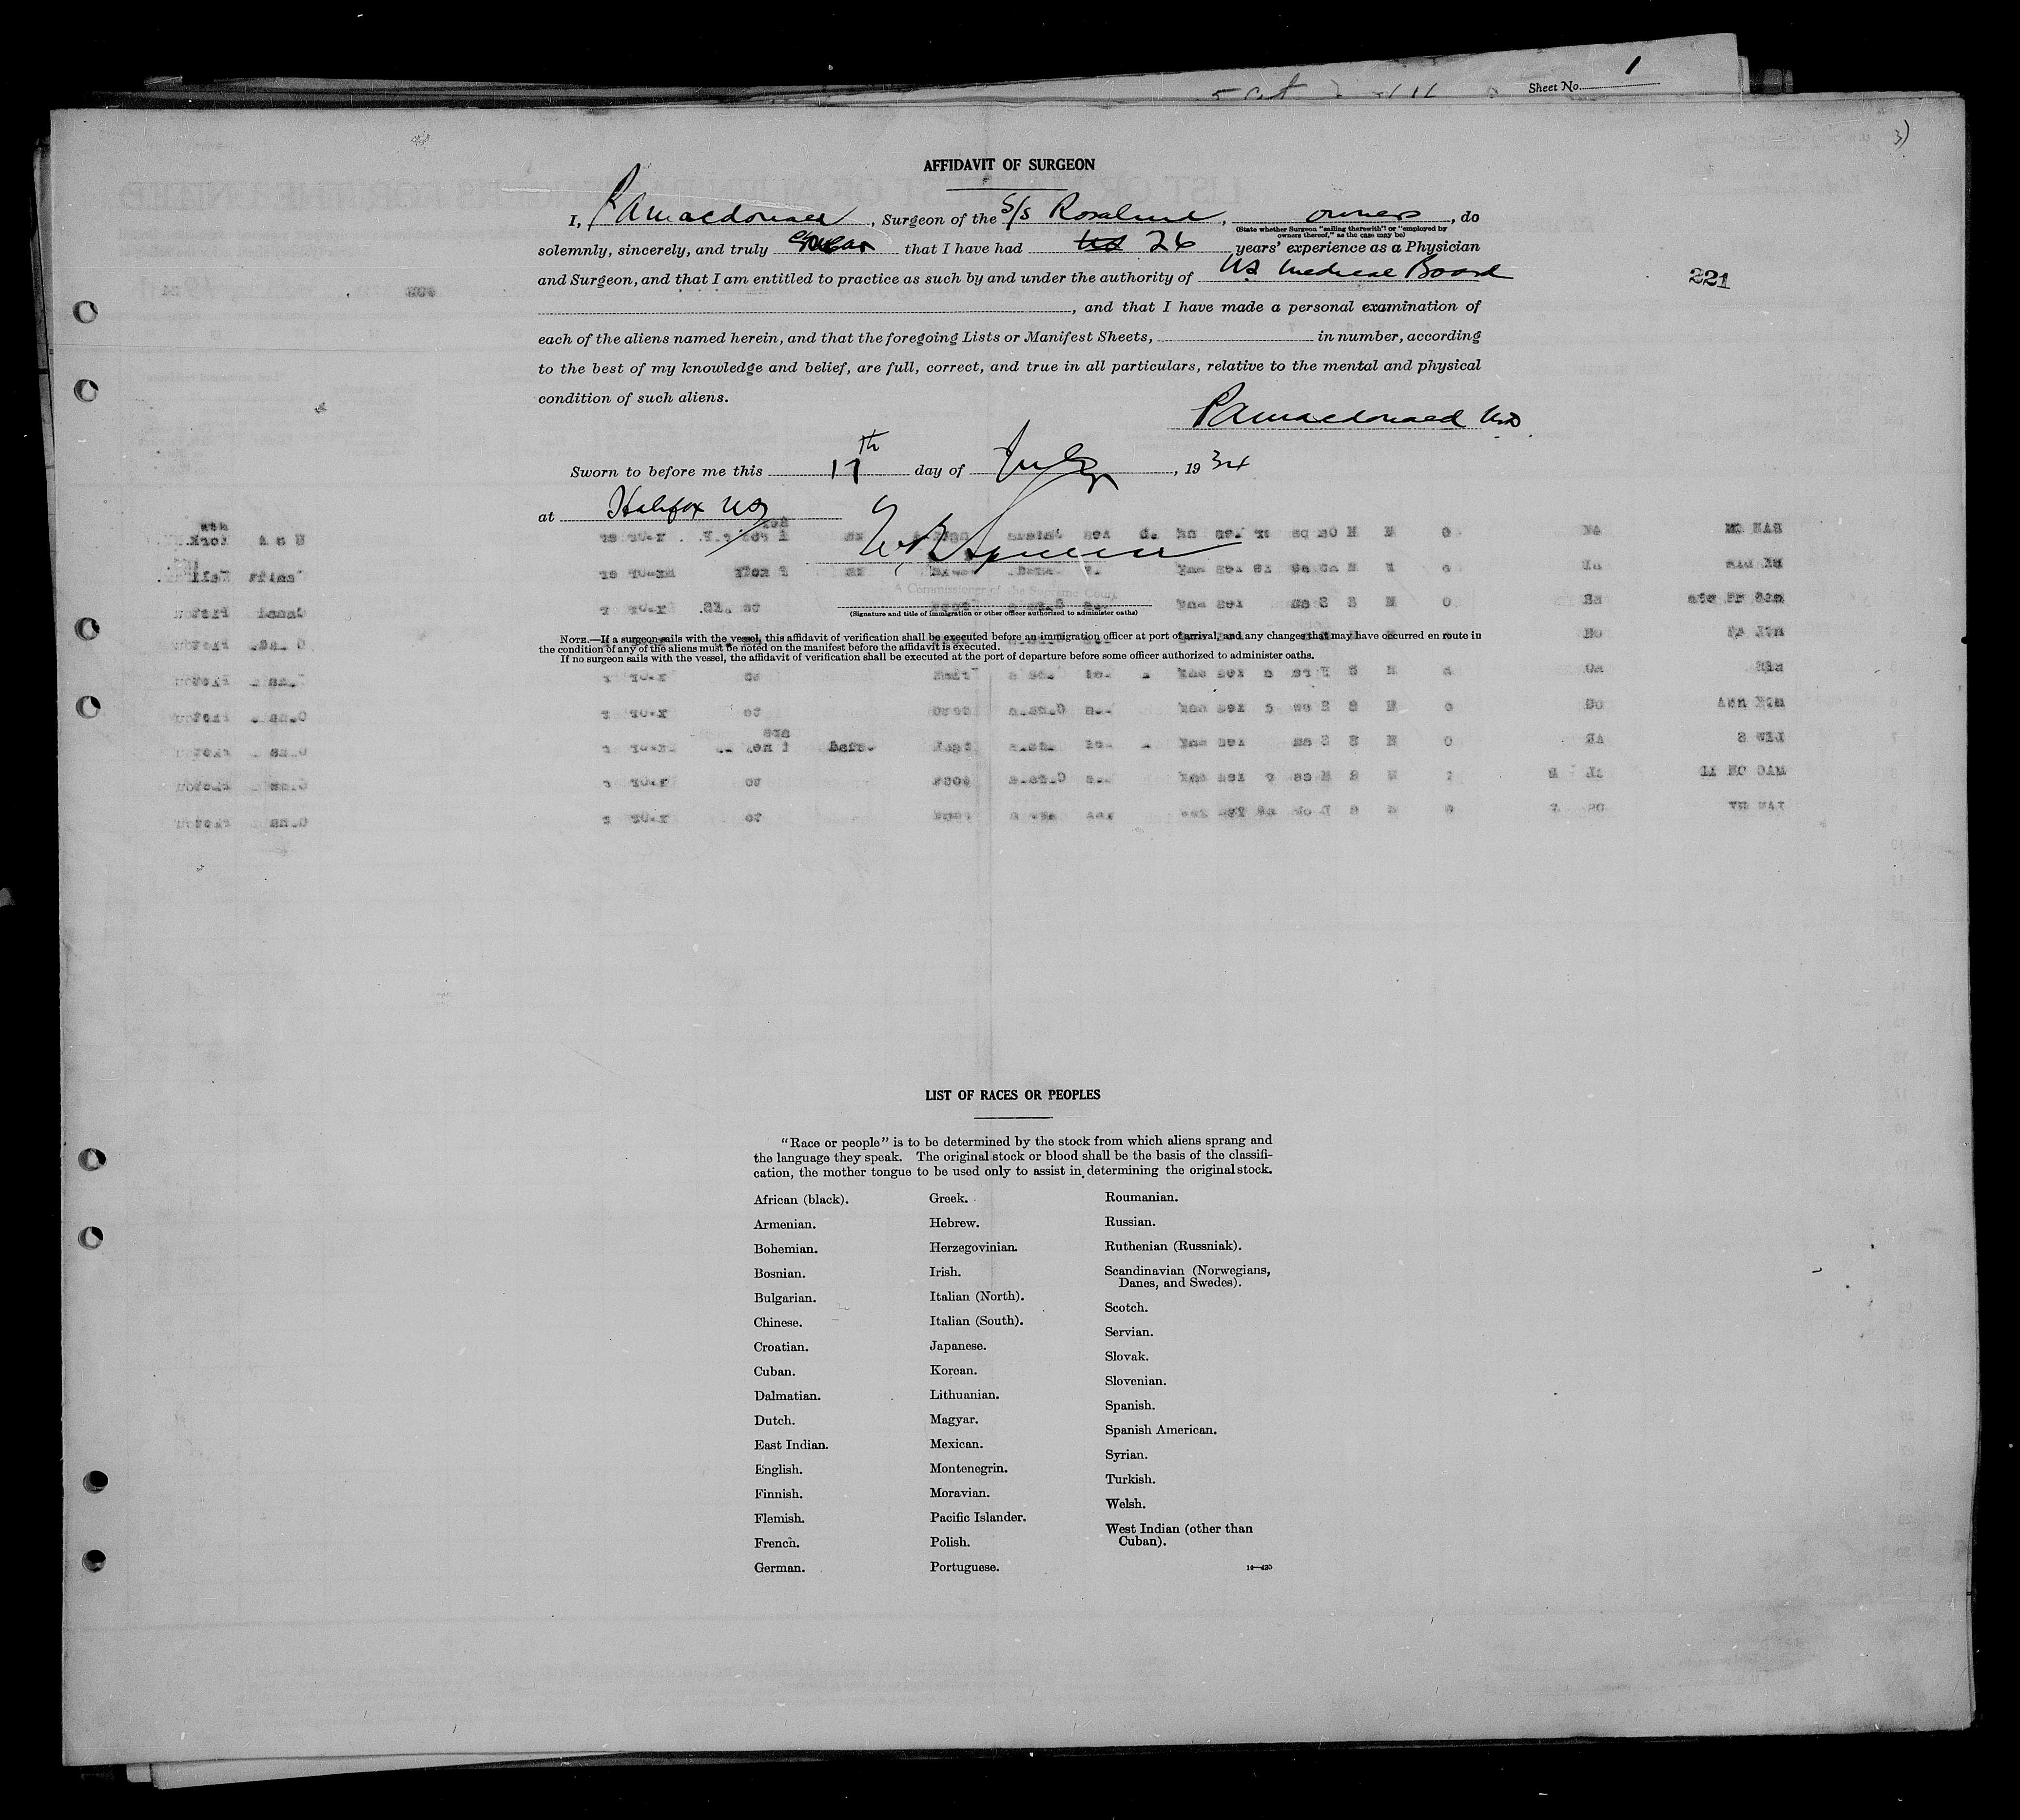 Sheet No. 1
3)
AFFIDAVIT OF SURGEON
I, P A Macdonald, Surgeon of the S/s Rosalind, owners, do
(State whether Surgeon "sailing therewith" or "employed by
owners thereof," as the case may be)
solemnly, sincerely, and truly swear that I have had 26 years' experience as a Physician
and Surgeon, and that I am entitled to practice as such by and under the authority of NS Medical Board
221
, and that I have made a personal examination of
each of the aliens named herein, and that the foregoing Lists or Manifest Sheets, in number, according
to the best of my knowledge and belief, are full, correct, and true in all particulars, relative to the mental and physical
condition of such aliens.
P A Macdonald MD.
Sworn to before me this 17th day of July, 1934
at Halifax NS
A Commissioner of the Supreme Court
(Signature and title of immigration or other officer authorized to administer oaths)
NOTE.—If a surgeon sails with the vessel, this affidavit of verification shall be executed before an immigration officer at port of arrival, and any changes that may have occurred en route in
the condition of any of the aliens must be noted on the manifest before the affidavit is executed.
If no surgeon sails with the vessel, the affidavit of verification shall be executed at the port of departure before some officer authorized to administer oaths.
LIST OF RACES OR PEOPLES
"Race or people" is to be determined by the stock from which aliens sprang and
the language they speak. The original stock or blood shall be the basis of the classifi-
cation, the mother tongue to be used only to assist in determining the original stock.
African (black).
Armenian.
Bohemian.
Bosnian.
Bulgarian.
Chinese.
Croatian.
Cuban.
Dalmatian.
Dutch.
East Indian.
English.
Finnish.
Flemish.
French.
German.
Greek.
Hebrew.
Herzegovinian.
Irish.
Italian (North).
Italian (South).
Japanese.
Korean.
Lithuanian.
Magyar.
Mexican.
Montenegrin.
Moravian.
Pacific Islander.
Polish.
Portuguese.
Roumanian.
Russian.
Ruthenian (Russniak).
Scandinavian (Norwegians,
Danes, and Swedes).
Scotch.
Servian.
Slovak.
Slovenian.
Spanish.
Spanish American.
Syrian.
Turkish.
Welsh.
West Indian (other than
Cuban).
14—420